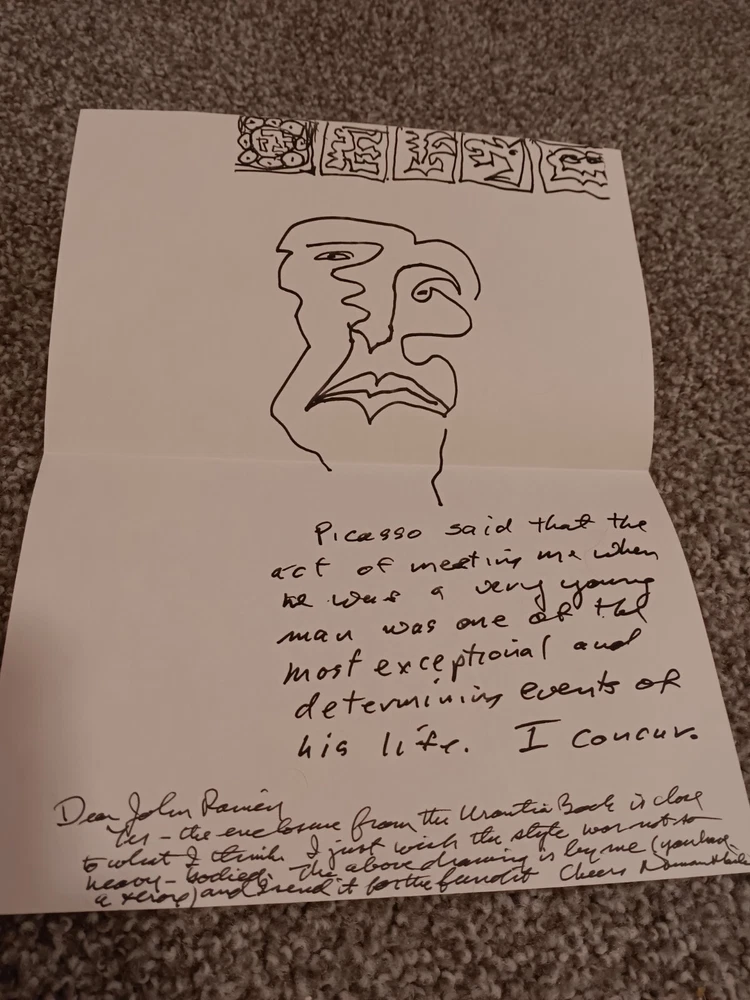 Picasso said that the
act of meeting me when
he was a very young
man was one of the
most exceptional and
determining events of
his life. I concur.
Dear John
Yes - the enclosure from the Urantia Book is close
to what I think. I just wish the style was not so
heavy-bodied. The above drawing is by me (you have
a xerox) and I send it for the fun of it Cheers Norman